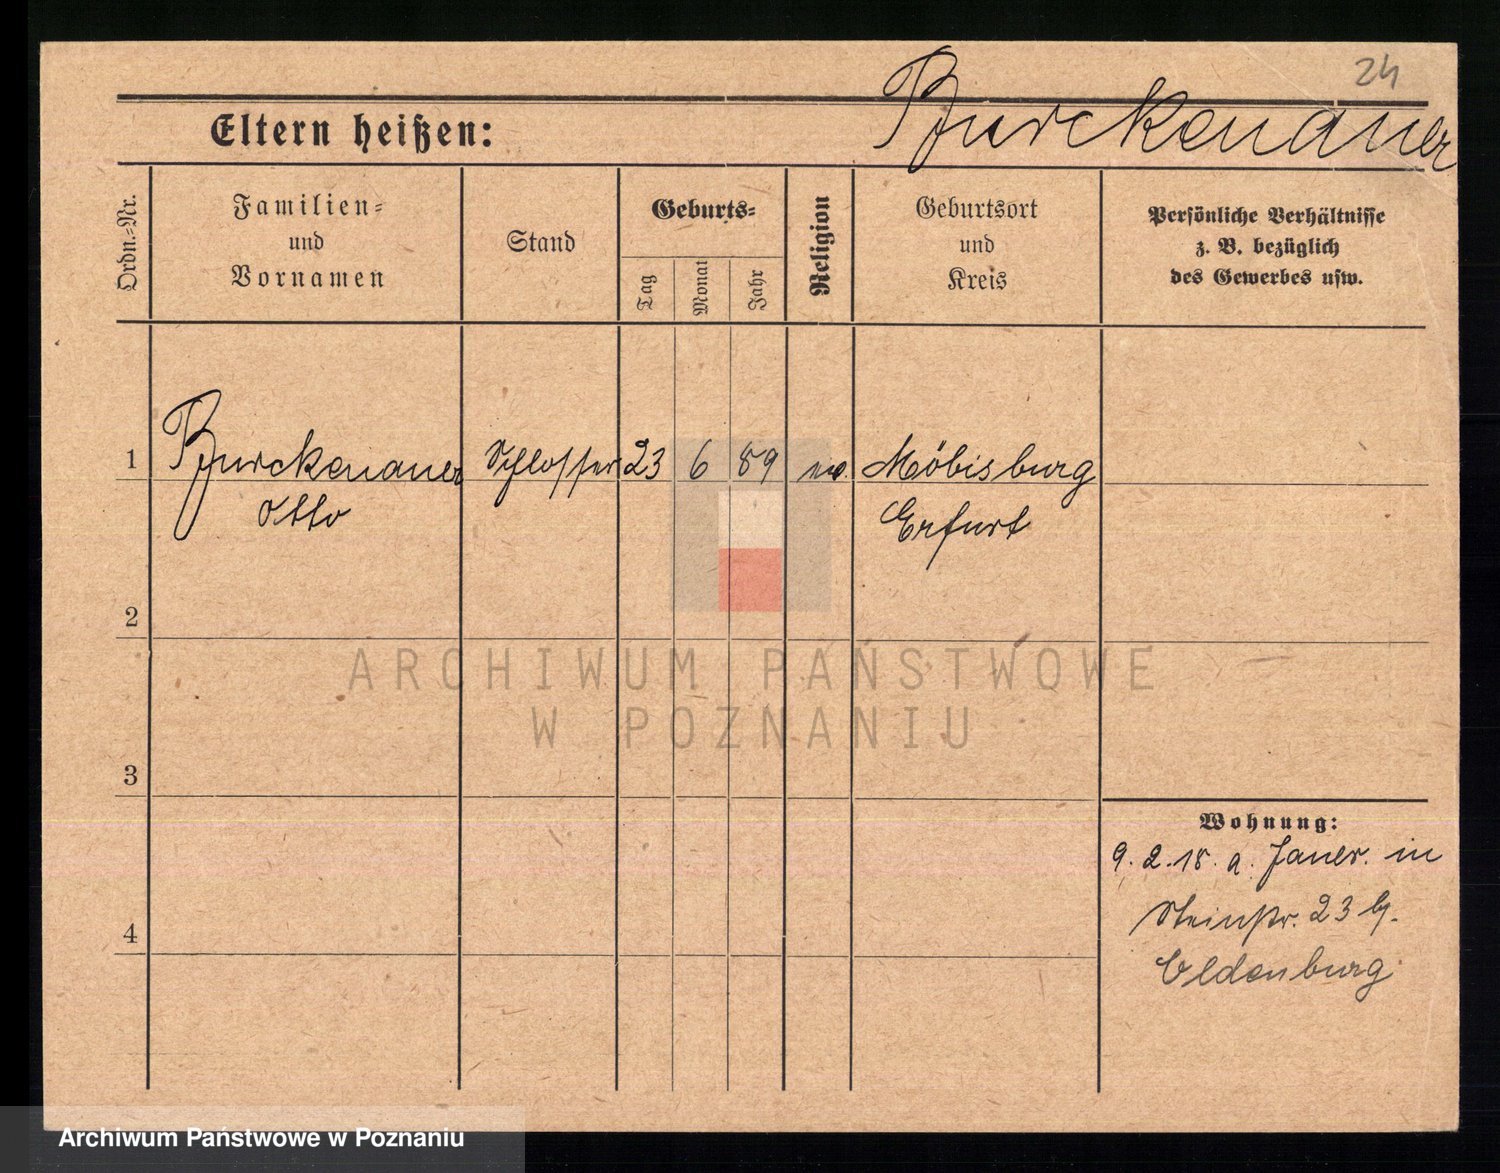 24
Eltern heißen:
Burckenauer
Ordn.-Nr.
Familien-
und
Vornamen
Stand
Geburts-
Tag
Monat
Jahr
Religion
Geburtsort
und
Kreis
Persönliche Verhältnisse
z. B. bezüglich
des Gewerbes usw.
1 Burckenauer Schlosser 23 6 89 ev. Möbisburg
Otto Erfurt
2
ARCHIWUM PAŃSTWOWE
W POZNANIU
3
Wohnung:
9. 2. 18. a. Jauer. in
Steinstr. 23 b.
4
Oldenburg
Archiwum Państwowe w Poznaniu